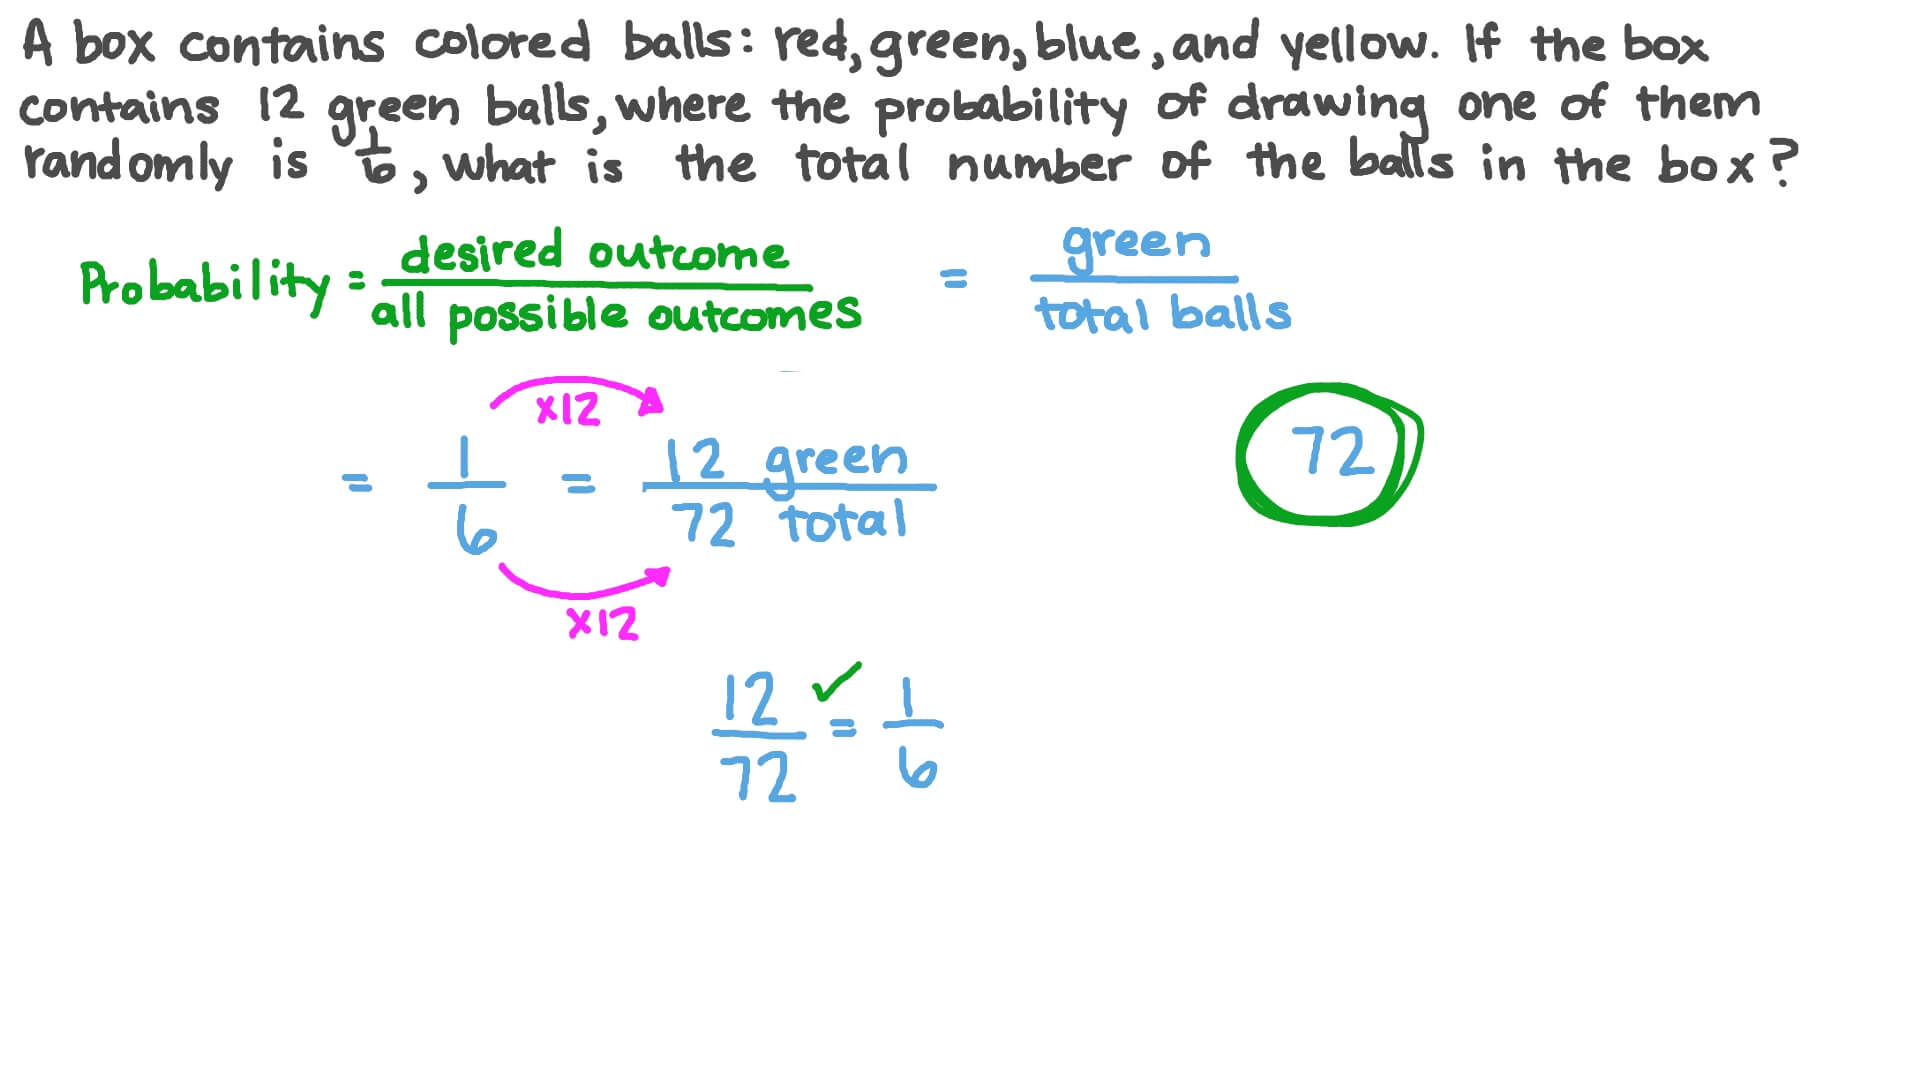 A box contains colored balls: red, green, blue, and yellow. If the box
contains 12 green balls, where the probability of drawing one of them
randomly is 1/6, what is the total number of the balls in the box?
Probability = desired outcome / all possible outcomes = green / total balls
x12
= 1/6 = 12 green / 72 total
72
x12
12/72 ✓= 1/6